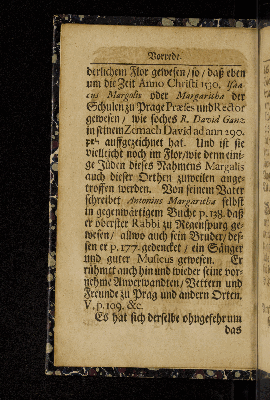 Vorrede.
derlichem Flor gewesen/ so/ daß eben
um die Zeit Anno Christi 1530. Isaa-
cus Margolis oder Margaritha der
Schulen zu Prage Præses und Rector
gewesen/ wie solches R. David Ganz
in seinem Zemach David ad ann 290.
auffgezeichnet hat. Und ist sie
vielleicht noch im Flor/ wie denn eini-
ge Jüden dieses Nahmens Margalis
auch dieser Orthen zuweilen ange-
troffen werden. Von seinem Vater
schreibet Antonius Margaritha selbst
in gegenwärtigem Buche p. 138. daß
er oberster Rabbi zu Regenspurg ge-
wesen/ allwo auch sein Bruder/ des-
sen er p. 177. gedencket/ ein Sänger
und guter Musicus gewesen. Er
rühmt auch hin und wieder seine vor-
nehme Anverwandten/ Vettern und
Freunde zu Prag und andern Orten.
V. p. 109. &c.
Es hat sich derselbe ohngefehr um
das